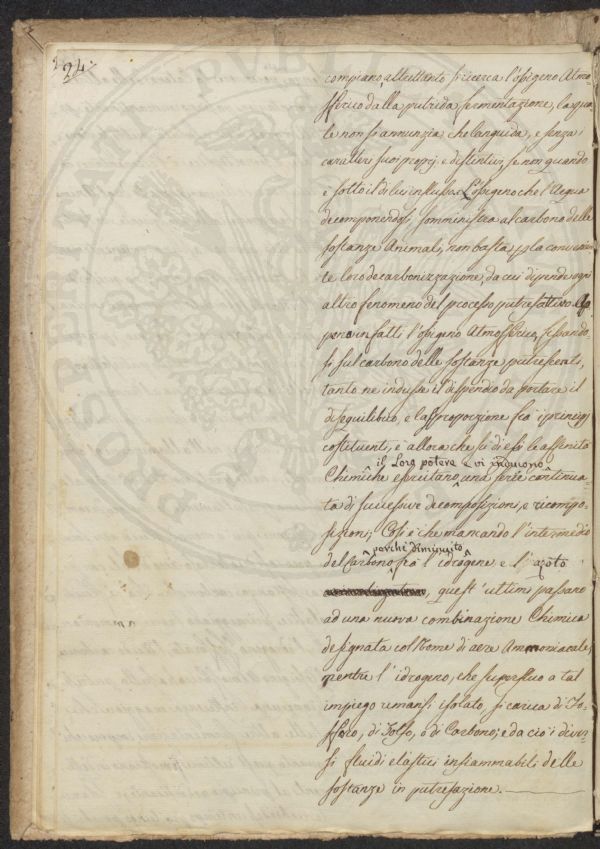 24.
compiano, altrettanto si ricerca l'ossigeno Atmo=
sferico dalla putrida fermentazione, la qua
le non si annunzia che languida, e senza i
caratteri suoi proprj e distintivi, se non quando
è sotto il di lui influsso. L'ossigeno che l'Acqua
decomponendosi, somministra al carbono delle
sostanze Animali, non basta per la
te loro decarbonizzazione, da cui dipende ogni
altro fenomeno del processo putrefattivo. Ap
pena infatti l'ossigeno Atmosferico, fissando
si sul carbono delle sostanze putrescenti,
tanto ne indusse il dispendio da portare il
disequilibrio, e la sproporzione frà i principj
costituenti, è allora che su di essi le affinità
il Loro potere e vi inducono
Chimiche esercitano una serie continua
ta di successive decomposizioni, e ricompo=
sizioni; Così è che mancando l'intermedio
perchè diminuito
del Carbono frà l'idrogene e l'azoto
, quest'ultimi passano
ad una nuova combinazione Chimica
designata col Nome di aere Ammoniacale,
mentre l'idrogeno, che superfluo a tal
impiego rimansi isolato, si carica di Fo=
sforo, di Solfo, o di Carbono; e da ciò i diver
si fluidi elastici infiammabili delle
sostanze in putrefazione.
PVBLI
PROSPERITATI